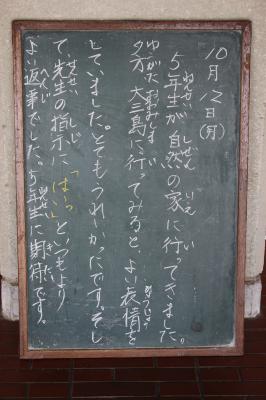 10月12日(月)
5年生が自然の家に行ってきました。
夕方、大三島に行ってみると、よい表情を
していました。とてもうれしかったです。そし
て、先生の指示に「はいっ」といつもより
よい返事でした。5年生に期待です。